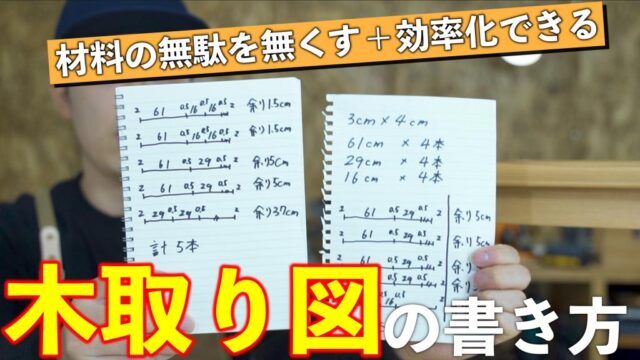 材料の無駄を無くす+効率化できる
2 61 0.5 16 0.5 16 0.5 2 余り1.5cm
2 61 0.5 16 0.5 16 0.5 2 余り1.5cm
2 61 0.5 29 0.5 2 余り5cm
2 61 0.5 29 0.5 2 余り5cm
2 29 0.5 29 0.5 2 余り37cm
計5本
3cm×4cm
61cm ×4本
29cm ×4本
16cm ×4本
2 61 0.5 29 0.5 2 余り5cm
2 61 0.5 29 0.5 2 余り5cm
2 61 0.5 29 0.5 2
2 61 0.5 29 0.5 2
木取り図の書き方